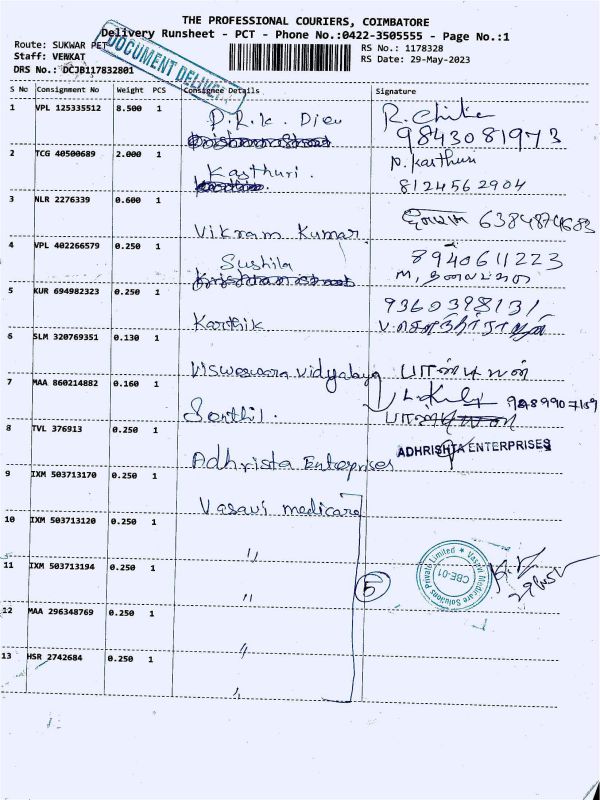 THE PROFESSIONAL COURIERS, COIMBATORE
Delivery Runsheet - PCT - Phone No.:0422-3505555 - Page No.:1
Route: SUKWAR PET
RS No.: 1178328
Staff: VENKAT
RS Date: 29-May-2023
DRS No.: DCJB117832801
DOCUMENT DELIVERY
S No Consignment No Weight PCS Consignee Details Signature
1 VPL 125335512 8.500 1 P.R.K. Dieu
9843081973
2 TCG 40500689 2.000 1 Kasthuri. P. Kasthuri
8124562904
3 NLR 2276339 0.600 1 Vikram Kumar
4 VPL 402266579 0.250 1 Sushila 8940611223
5 KUR 694982323 0.250 1 Karthik
6 SLM 320769351 0.130 1 Visweswara Vidyalaya பாண்டியன்
7 MAA 860214882 0.160 1 Senthil.
8 TVL 376913 0.250 1 Adhrista Enterprises ADHRISHTA ENTERPRISES
9 IXM 503713170 0.250 1 Vasavi medicare
10 IXM 503713120 0.250 1 "
11 IXM 503713194 0.250 1 " 5
Vasavi Medicare Solutions Private Limited
CBE-01
12 MAA 296348769 0.250 1 "
13 HSR 2742684 0.250 1 "